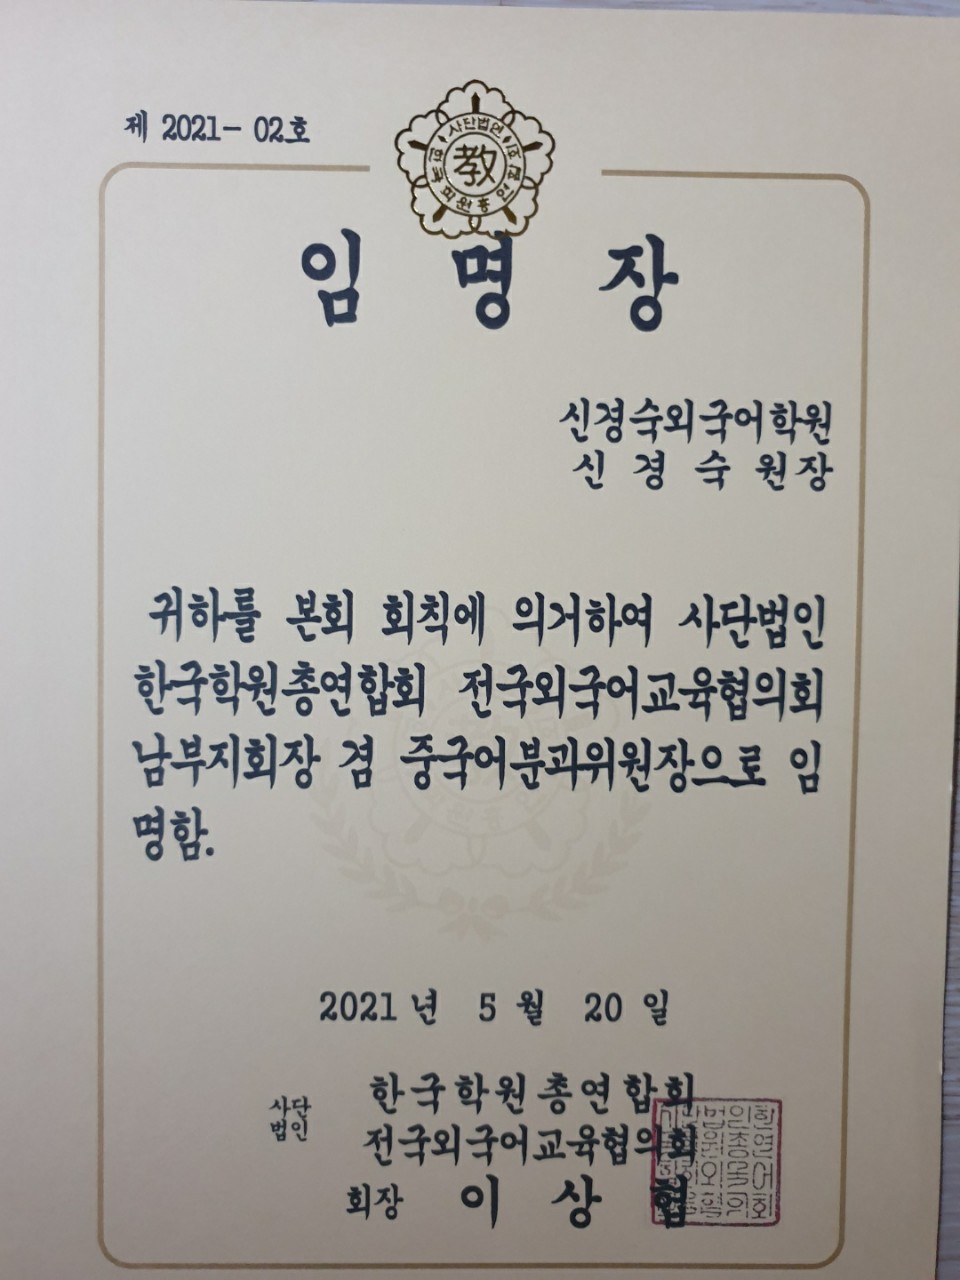 제 2021- 02호
사단법인
敎
임 명 장
신경숙외국어학원
신 경 숙 원장
귀하를 본회 회칙에 의거하여 사단법인
한국학원총연합회 전국외국어교육협의회
남부지회장 겸 중국어분과위원장으로 임
명함.
2021 년 5 월 20 일
사단
법인
한국학원총연합회
전국외국어교육협의회
회장 이 상 협